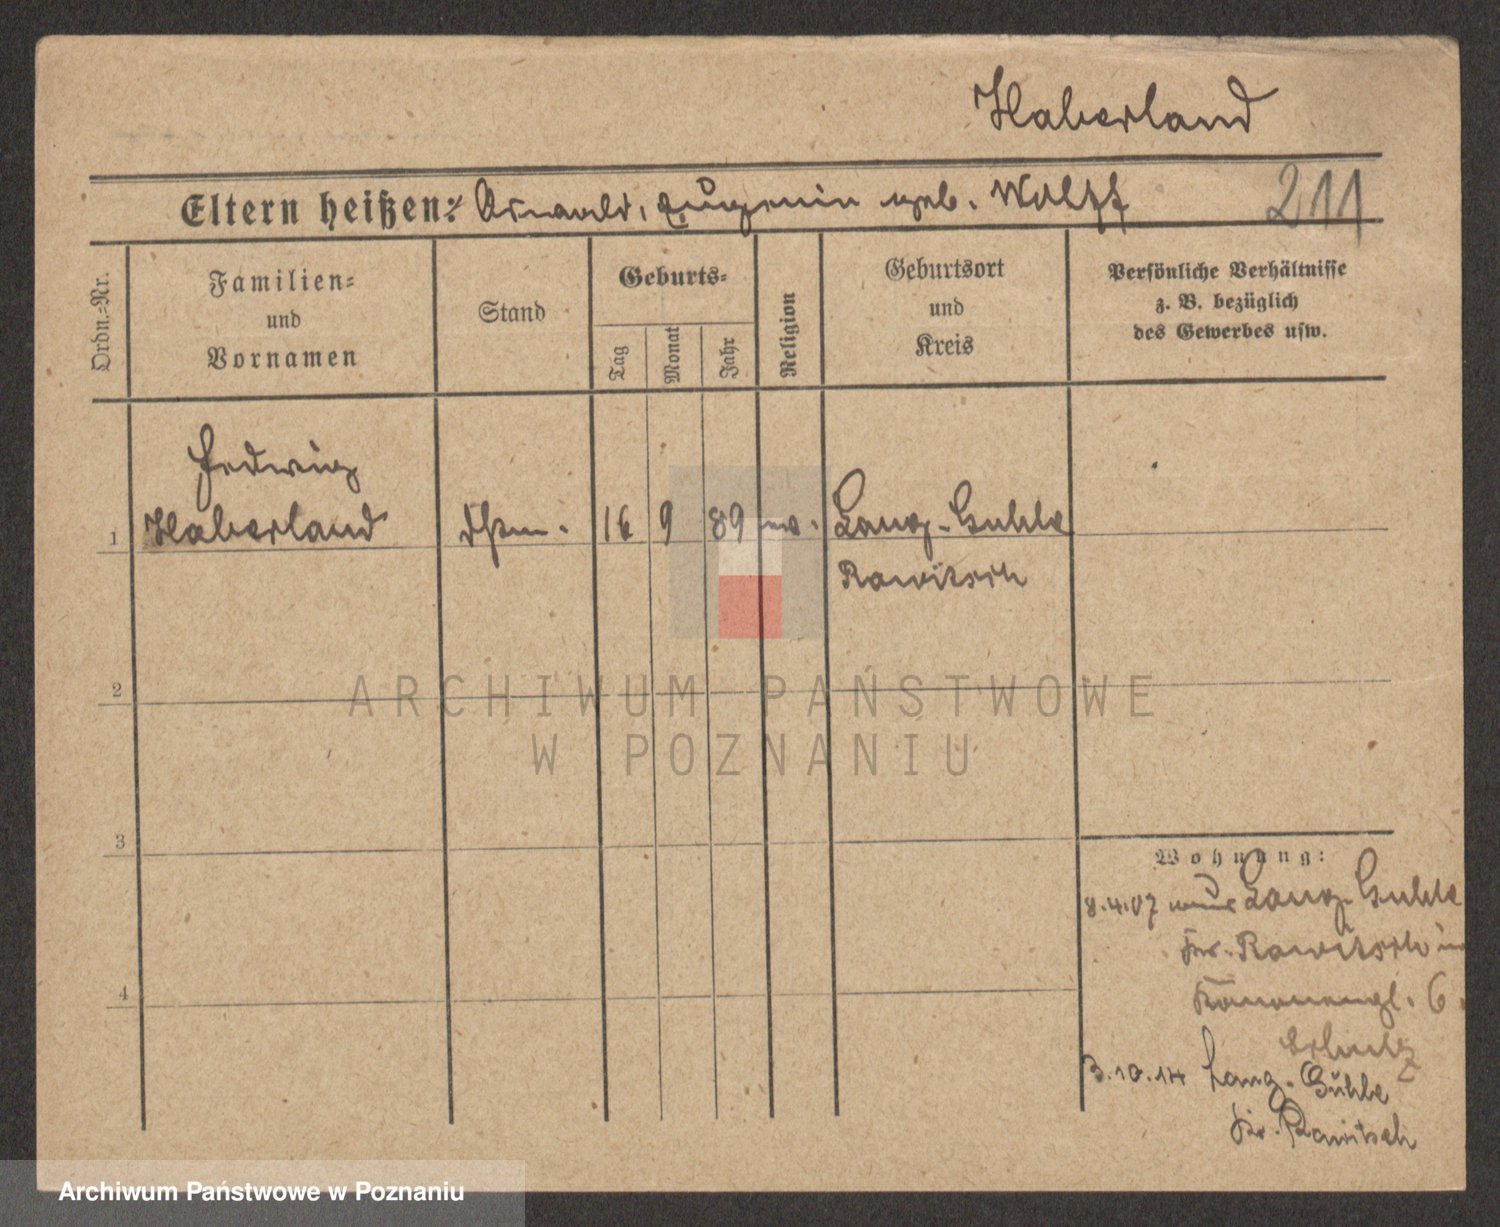 Haberland
Eltern heißen: Oswald, Eugenin geb. Wolff
211
Ordn.=Nr.
Familien=
und
Vornamen
Stand
Geburts=
Tag
Monat
Jahr
Religion
Geburtsort
und
Kreis
Persönliche Verhältnisse
z. B. bezüglich
des Gewerbes usw.
Hedwig
1 Haberland 16 9 89 ev. Lang-Guhle
Rawitsch
2
3
4
Wohnung:
8.4.07 Lang-Guhle
Kr. Rawitsch
6
3.10.14 Lang-Guhle
Kr. Rawitsch
ARCHIWUM PAŃSTWOWE
W POZNANIU
Archiwum Państwowe w Poznaniu